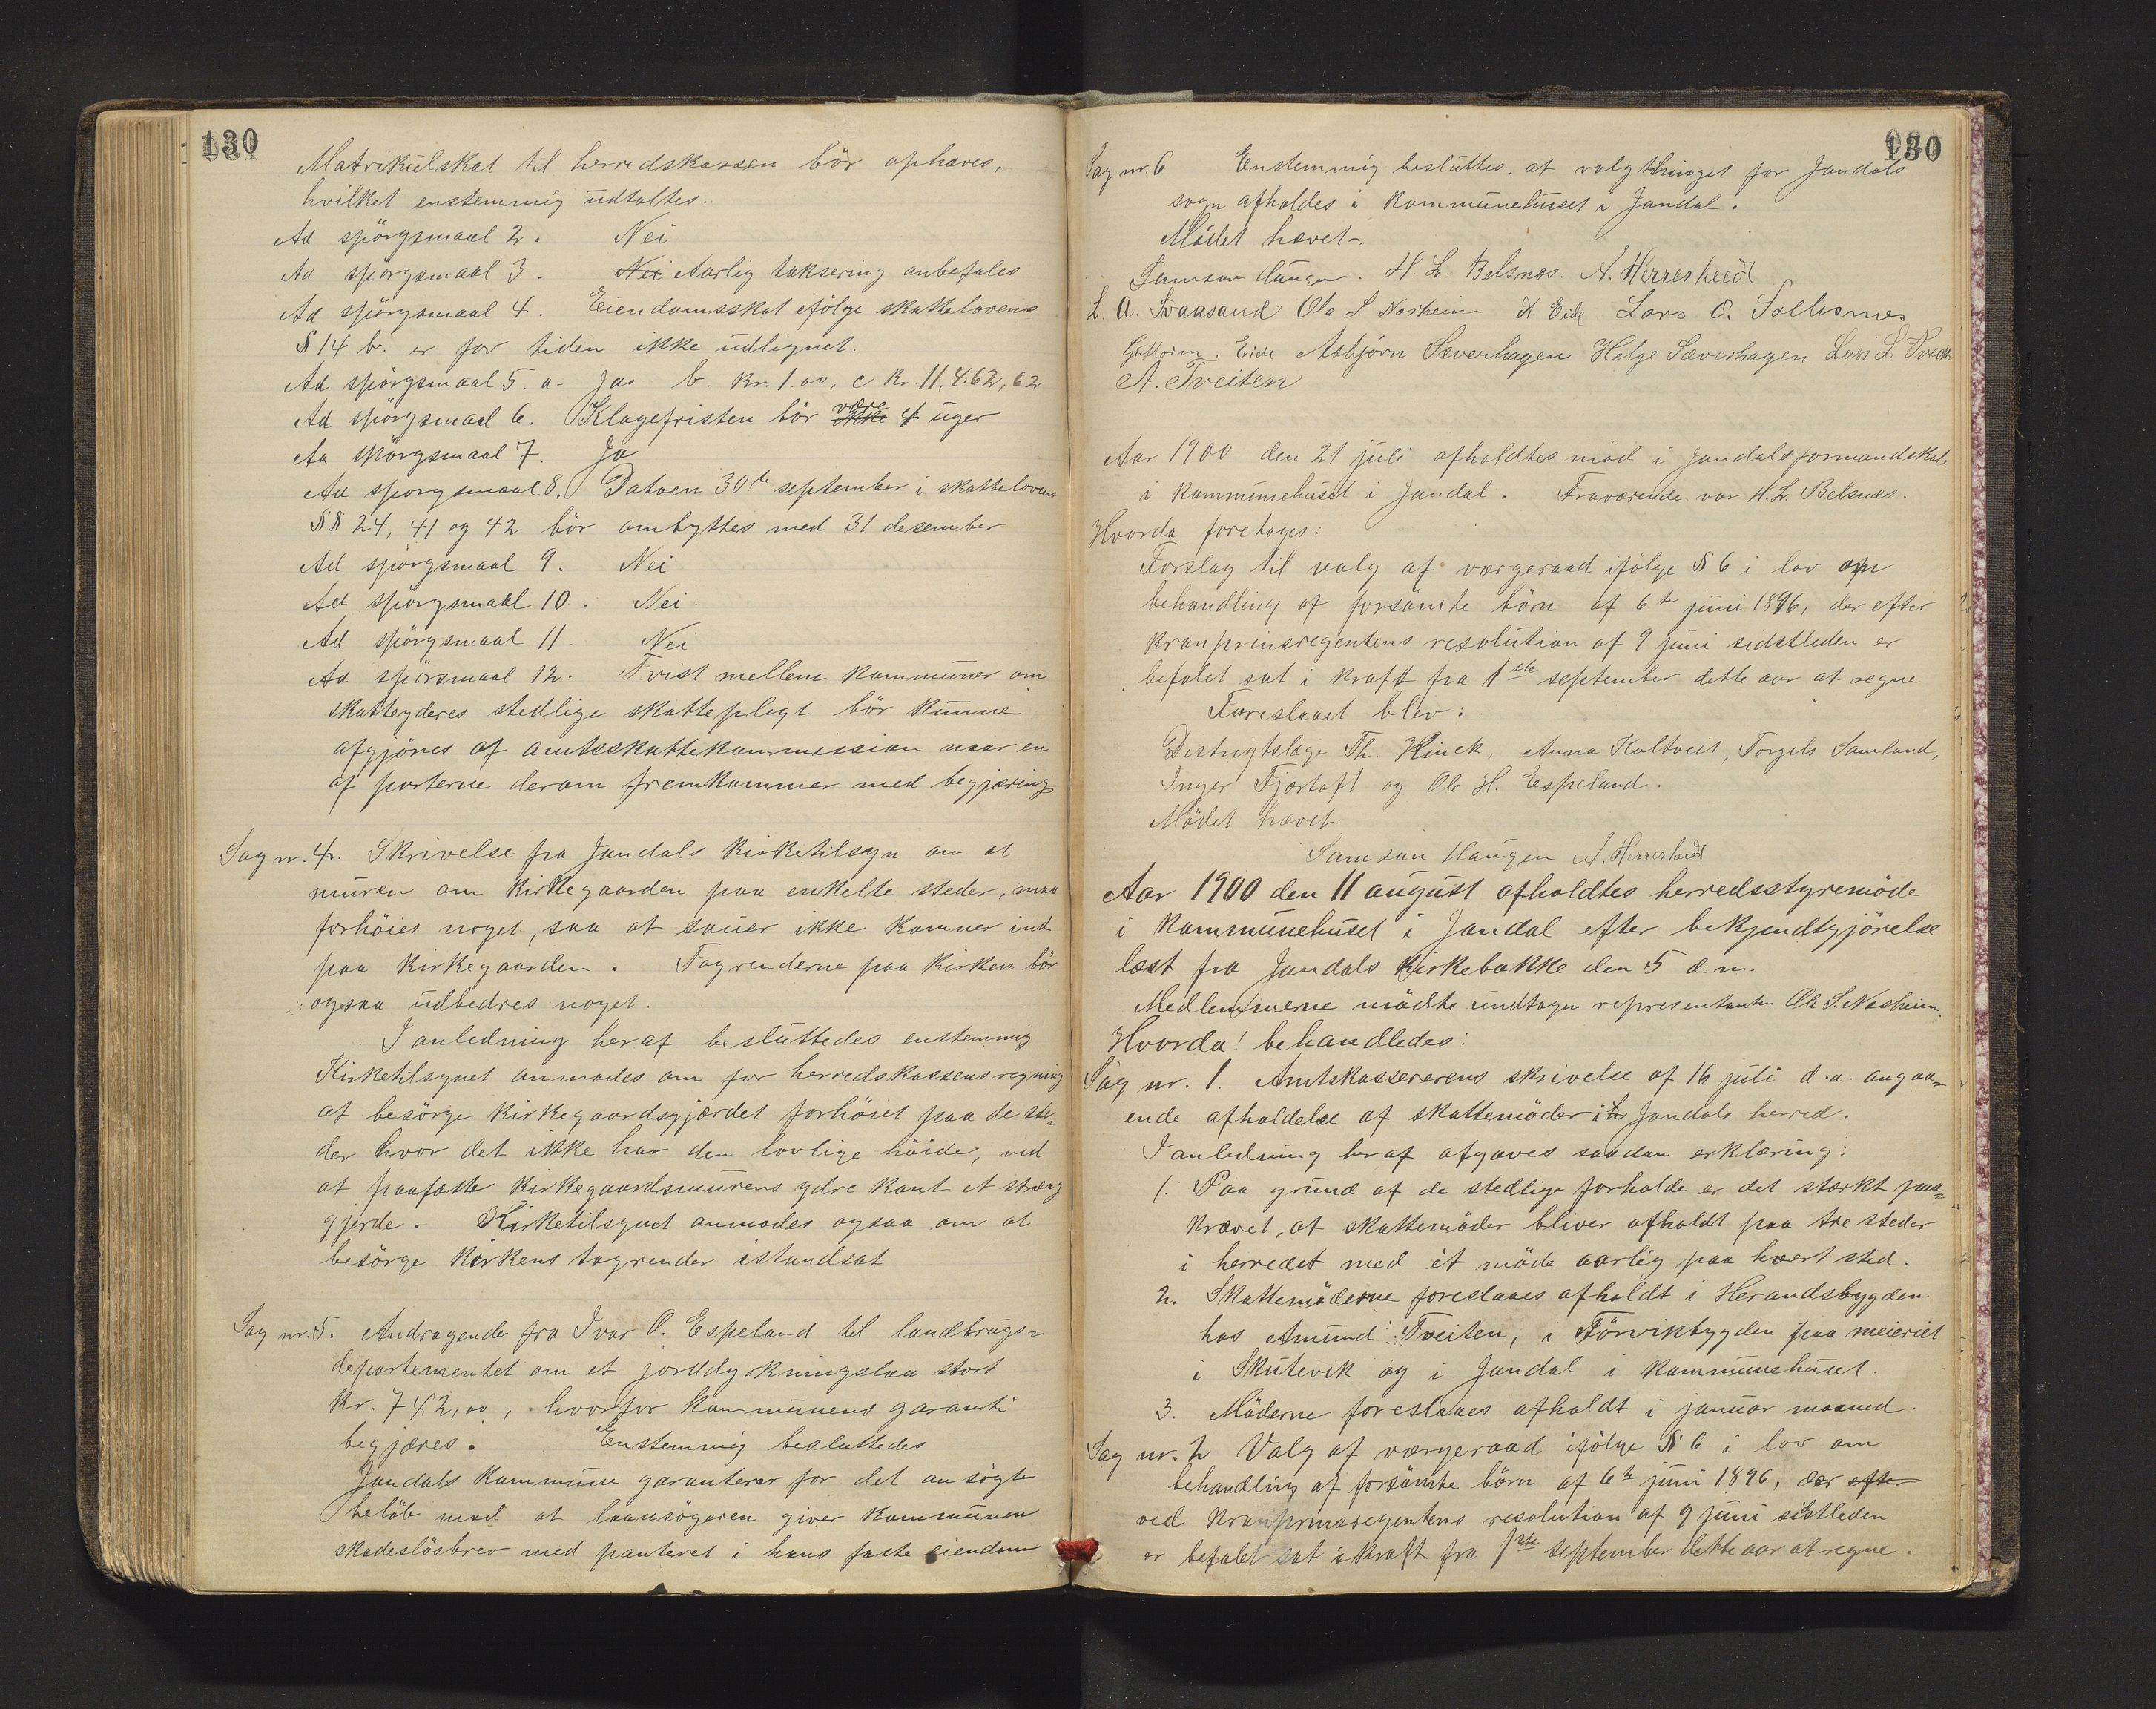 130
Matrikulskat til herredskassen bör ophæves,
hvilket enstemmig udtaltes.
Ad spörgsmaal 2. Nei
Ad spörgsmaal 3. Nei Aarlig taksering anbefales
Ad spörgsmaal 4. Eiendomsskat ifölge skattelovens
§ 14 b. er for tiden ikke udlignet.
Ad spörgsmaal 5. a. Ja b. Kr. 1.00, c Kr. 11,462,62
Ad spörgsmaal 6. Klagefristen bör ikke være 4 uger
Ad spörgsmaal 7. Ja
Ad spörgsmaal 8. Datoen 30te september i skattelovens
§§ 24, 41 og 42 bör ombyttes med 31 desember
Ad spörgsmaal 9. Nei
Ad spörgsmaal 10. Nei
Ad spörgsmaal 11. Nei
Ad spörsmaal 12. Tvist mellem kommuner om
skatteyderes stedlige skattepligt bör kunne
afgjöres af amtsskattekommission naar en
af parterne derom fremkommer med begjæring
Sag nr. 4. Skrivelse fra Jondals kirketilsyn om at
muren om kirkegaarden paa enkelte steder, maa
forhöies noget, saa at sauer ikke kommer ind
paa kirkegaarden. Tagrenderne paa kirken bör
ogsaa udbedres noget.
I anledning heraf besluttedes enstemmig
Kirketilsynet anmodes om for herredskassens regning
at besörge kirkegaardsgjærdet forhöiet paa de ste-
der hvor det ikke har den lovlige höide, ved
at paafæste kirkegaardsmurens ydre kant et stræng
gjerde. Kirketilsynet anmodes ogsaa om at
besörge kirkens tagrender istandsat
Sag nr. 5. Andragende fra Ivar O. Espeland til landbrugs-
departementet om et jorddyrkningslaan stort
Kr. 742,00, hvorfor kommunens garanti
begjæres. Enstemmig besluttedes
Jondals kommune garanterer for det ansögte
belöb mod at laansögeren giver kommunen
skadeslösbrev med panteret i hans faste eiendom
130
Sag nr. 6 Enstemmig besluttes, at valgthinget for Jondals
sogn afholdes i kommunehusset i Jondal.
Mödet hævet.
Samson Haugen. H. L. Belsnæs. N. Herresheid
L. A. Svaasand Ola S. Næsheim N. Eide Lars O. Sollesnes
Guttorm. Eide Asbjörn Sæverhagen Helge Sæverhagen Lars L
A. Tveiten
Aar 1900 den 21 juli afholdtes möd i Jondals formandskab
i kommunehuset i Jondal. Fraværende var H. L. Belsnæs.
Hvorda foretages:
Forslag til valg af værgeraad ifölge § 6 i lov om
behandling af forsömte börn af 6te juni 1896, der efter
kronprinsregentens resolution af 9 juni sidstleden er
befalet sat i kraft fra 1ste september dette aar at regne
Foreslaaet blev:
Distrigtslæge Th. Kinck, Anna Holtveit, Torgils Samland,
Inger Fjærtoft og Ole H. Espeland.
Mödet hævet.
Samson Haugen N. Herresheid
Aar 1900 den 11 august afholdtes herredsstyremöde
i kommunehuset i Jondal efter bekjendtgjörelse
læst fra Jondals kirkebakke den 5 d.m.
Medlemmerne mödte undtagen representanten Ole S. Næsheim.
Hvorda! behandledes:
Sag nr. 1. Amtskassererens skrivelse af 16 juli d.a. angaa-
ende afholdelse af skattemöder i Jondals herred.
I anledning heraf afgaves saadan erklæring:
1. Paa grund af de stedlige forholde er det stærkt paa-
krævet, at skattemöder bliver afholdt paa tre steder
i herredet med ét möde aarlig paa hvert sted.
2. Skattemöderne foreslaaes afholdt i Herandsbygden
hos Amund Tveiten, i Törvikbygden paa meieriet
i Skutevik og i Jondal i kommunehuset.
3. Möderne foreslaaes afholdt i januar maaned.
Sag nr. 2 Valg af værgeraad ifölge § 6 i lov om
behandling af forsömte börn af 6te juni 1896, der efter
ved kronprinsregentens resolution af 9 juni sistleden
er befalet sat i kraft fra 1ste september dette aar at regne.